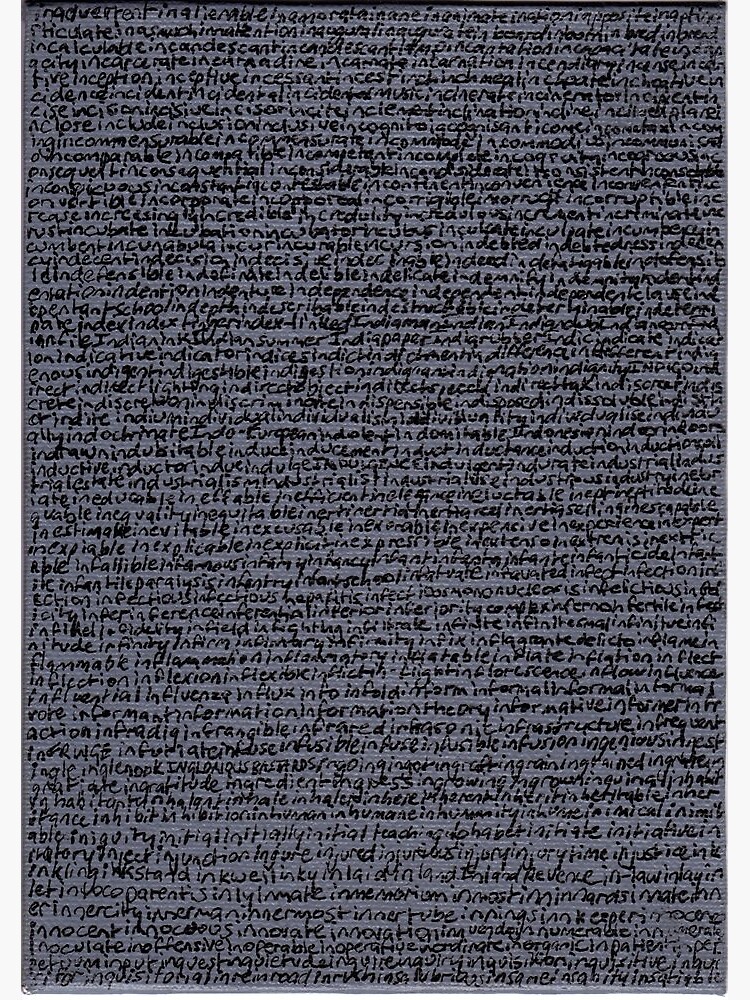 inadvertent inalienable inamorata inane inanimate inanition inapposite inapt in
articulate inasmuch inattention inaugural inaugurate in board inborn inbred inbreed
incalculable incandescent incantation incapacitate incap
acity incarcerate incarnadine incarnate incarnation incendiary incense incen
tive inception inceptive incessant incest inch inchmeal inchoate inchoative in
cidence incident incidental incidental music incinerate incinerator incipient in
cise incision incisive incisor incite incivility inclement inclination incline inclined plane i
nclose include inclusion inclusive incognito incognisant income income tax incom
ing incommensurable incommensurate incommode incommodious incommunicad
o incomparable incompatible incompetent incomplete incongruity incongruous inc
onsequent inconsequential inconsiderable inconsiderate inconsistent inconsolable
inconspicuous inconstant incontestable incontinent inconvenience inconvenient inc
onvertible incorporate incorporeal incorrigible incorrupt incorruptible inc
rease increasingly incredible incredulity incredulous increment incriminate inc
rust incubate incubation incubator incubus inculcate inculpate incumbency in
cumbent incunabula incur incurable incursion indebted indebtedness indecen
cy indecent indecision indecisive indeclinable indeed indefatigable indefensib
le indefensible indefinite indelible indelicate indemnify indemnity indent ind
entation indention indenture independence independent independent clause ind
ependent school in depth indescribable indestructible indeterminable indetermi
nate index index finger index-linked Indiaman Indian Indian club Indian corn Ind
ian file Indian ink Indian summer India paper India rubber Indic indicate indicat
ion indicative indicator indices indict indictment indifference indifferent indig
enous indigent indigestible indigestion indignant indignation indignity INDIGO ind
irect indirect lighting indirect object indirect speech indirect tax indiscreet indis
crete indiscretion indiscriminate indispensible indisposed indissoluble indistin
ct indite indium individual individualism individuality individualise individu
ally indoctrinate Indo-European indolent indomitable Indonesian indoor indoors
indrawn indubitable induct inducement induct inductance induction induction coil
inductive inductor indue indulge INDULGENCE indulgent indurate industrial indus
trial estate industrialism industrialist industrialise industrious industry ineb
riate ineducable ineffable inefficient inelegance ineluctable inept ineptitude ine
quable inequality inequitable inert inertia inertia reel inertia selling inescapable
inestimable inevitable inexcusable inexorable inexpensive inexperience inexpert
inexpiable inexplicable inexplicit inexpressible in extenso in extremis inextric
able infallible infamous infamy infancy infant infanta infante infanticide infant
ile infantile paralysis infantry infant school infatuate infatuated infect infection inf
ection infectious infectious hepatitis infectious mononucleosis infelicitous infel
icity infer inference inferential inferior inferiority complex inferno infertile infest
infidel infidelity infield infighting infiltrate infinite infinitesimal infinitive infi
nitude infinity infirm infirmary infirmity infix in flagrante delicto inflame in
flammable inflammation inflammatory inflatable inflate inflation inflect
inflection inflexion inflexible inflict in-flight inflorescence inflow influence
influential influenza influx info infold inform informal informal informal
vote informant information information theory informative informer infr
action infra dig infrangible infrared infrasonic infrastructure infrequent
INFRINGE infuriate infuse infusible infuse infusible infusion ingenious ingest
ingle inglenook INGLORIOUS BASTARDS ingoing ingot ingraft ingrain ingrained ingrate in
gratiate ingratitude ingredient ingress ingrowing ingrown inguinal inhabit
inhabitant inhalant inhale inhaler inhere inherent inherit inheritable inher
itance inhibit inhibition inhuman inhumane inhumanity inhume inimical inimit
able iniquity initial initially initial teaching alphabet initiate initiative in
itiatory inject injunction injure injured injurious injury injury time injustice ink
inkling inkstand inkwell inky inlaid inland Inland Revenue in-law inlay in
let in loco parentis inly inmate in memorium inmost inn innards innate inn
er inner city inner man innermost inner tube innings innkeeper innocence
innocent innocuous innovate innovation innuendo innumerable innumerate
inoculate inoffensive inoperable inoperative inordinate inorganic in patient in per
petuum input inquest inquietude inquire inquiry inquisition inquisitive inquisi
tor inquisitorial in re inroad inrush insalubrious insane insanity insatiable